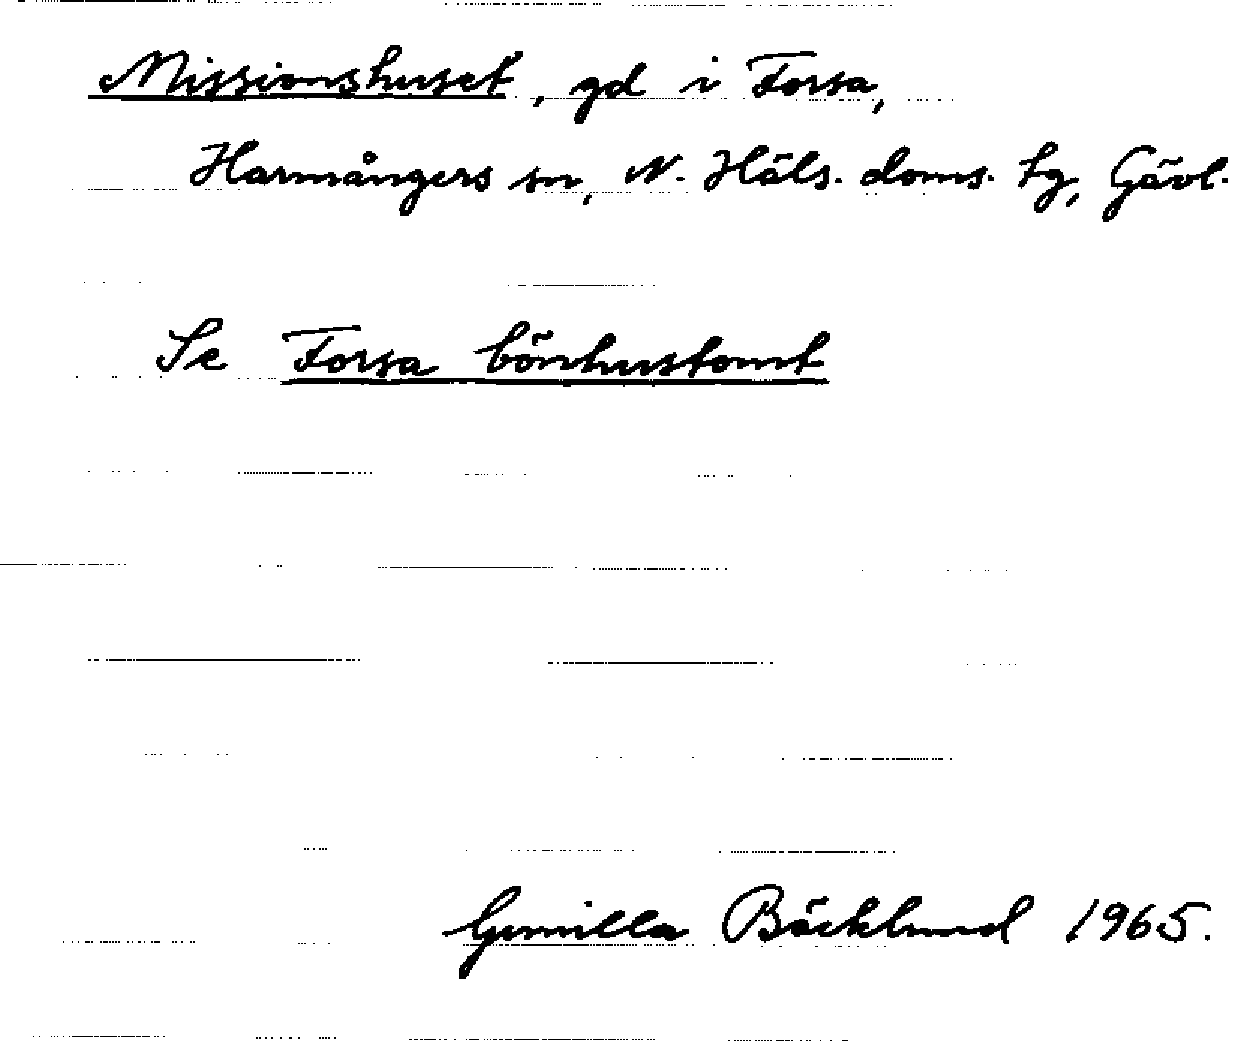 Missionshuset, gd i Forsa,
Harmångers sn, N. Häls. doms. tg, Gävl.
Se Forsa bönhustomt
Gunilla Bäcklund 1965.